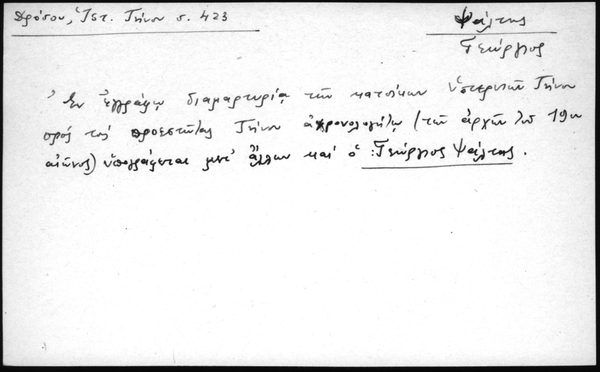 Δρόσου, Ἱστ. Τήνου σ. 423
Ψάλτης
Γεώργιος
Ἐν ἐγγράφῳ διαμαρτυρίᾳ τῶν κατοίκων Τήνου
πρὸς τοὺς προεστῶτας Τήνου ἀχρονολογήτῳ (τῶν ἀρχῶν τοῦ 19ου
αἰῶνος) ὑπογράφεται μετ' ἄλλων καὶ ὁ : Γεώργιος Ψάλτης.